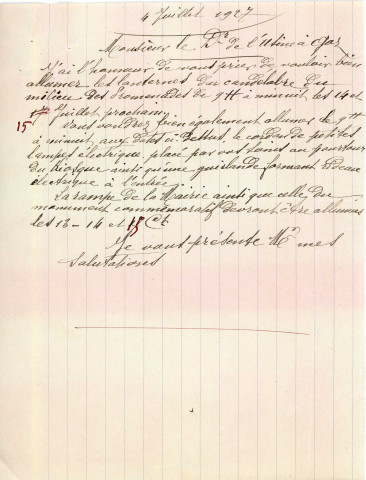 4 Juillet 1927
Monsieur le Dr de l'Usine à Gaz
J'ai l'honneur de vous prier, de vouloir bien
allumer les lanternes du candelabre du
milieu des Promenades de 9H à minuit, les 14 et
15 Juillet prochain,
Vous voudrez bien également allumer de 9H
à minuit, aux dates ci-dessus, le cordon de petites
lampes électrique placé par vos soins au pourtour
du Kiosque ainsi qu'une guirlande formant rideau
électrique à l'entrée.
La rampe de la Mairie ainsi que celle du
monument commémoratif devront être allumées
les 13 - 14 et 15 Ct.
Je vous présente Mr mes
salutations